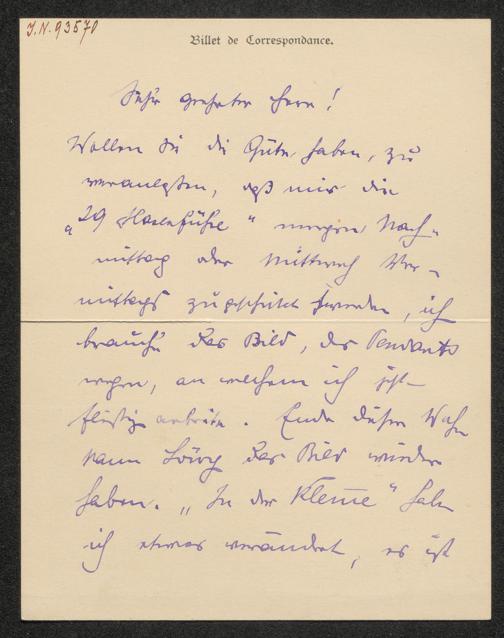 J.N. 93570
Billet de Correspondance.
Sehr geehrter Herr!
Wollen Sie die Güte haben, zu
veranlassen, daß mir die
„29 Hasenfüße“ morgen Nach-
mittag oder Mittwoch Vor-
mittags zugeschickt werden, ich
brauche das Bild, des Pendants
wegen, an welchem ich jetzt
fleißig arbeite. Ende dieser Woche
kann Löwy das Bild wieder
haben. „In der Klemme“ habe
ich etwas verändert, es ist